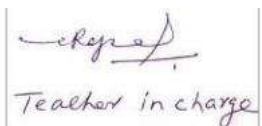 Teacher in charge